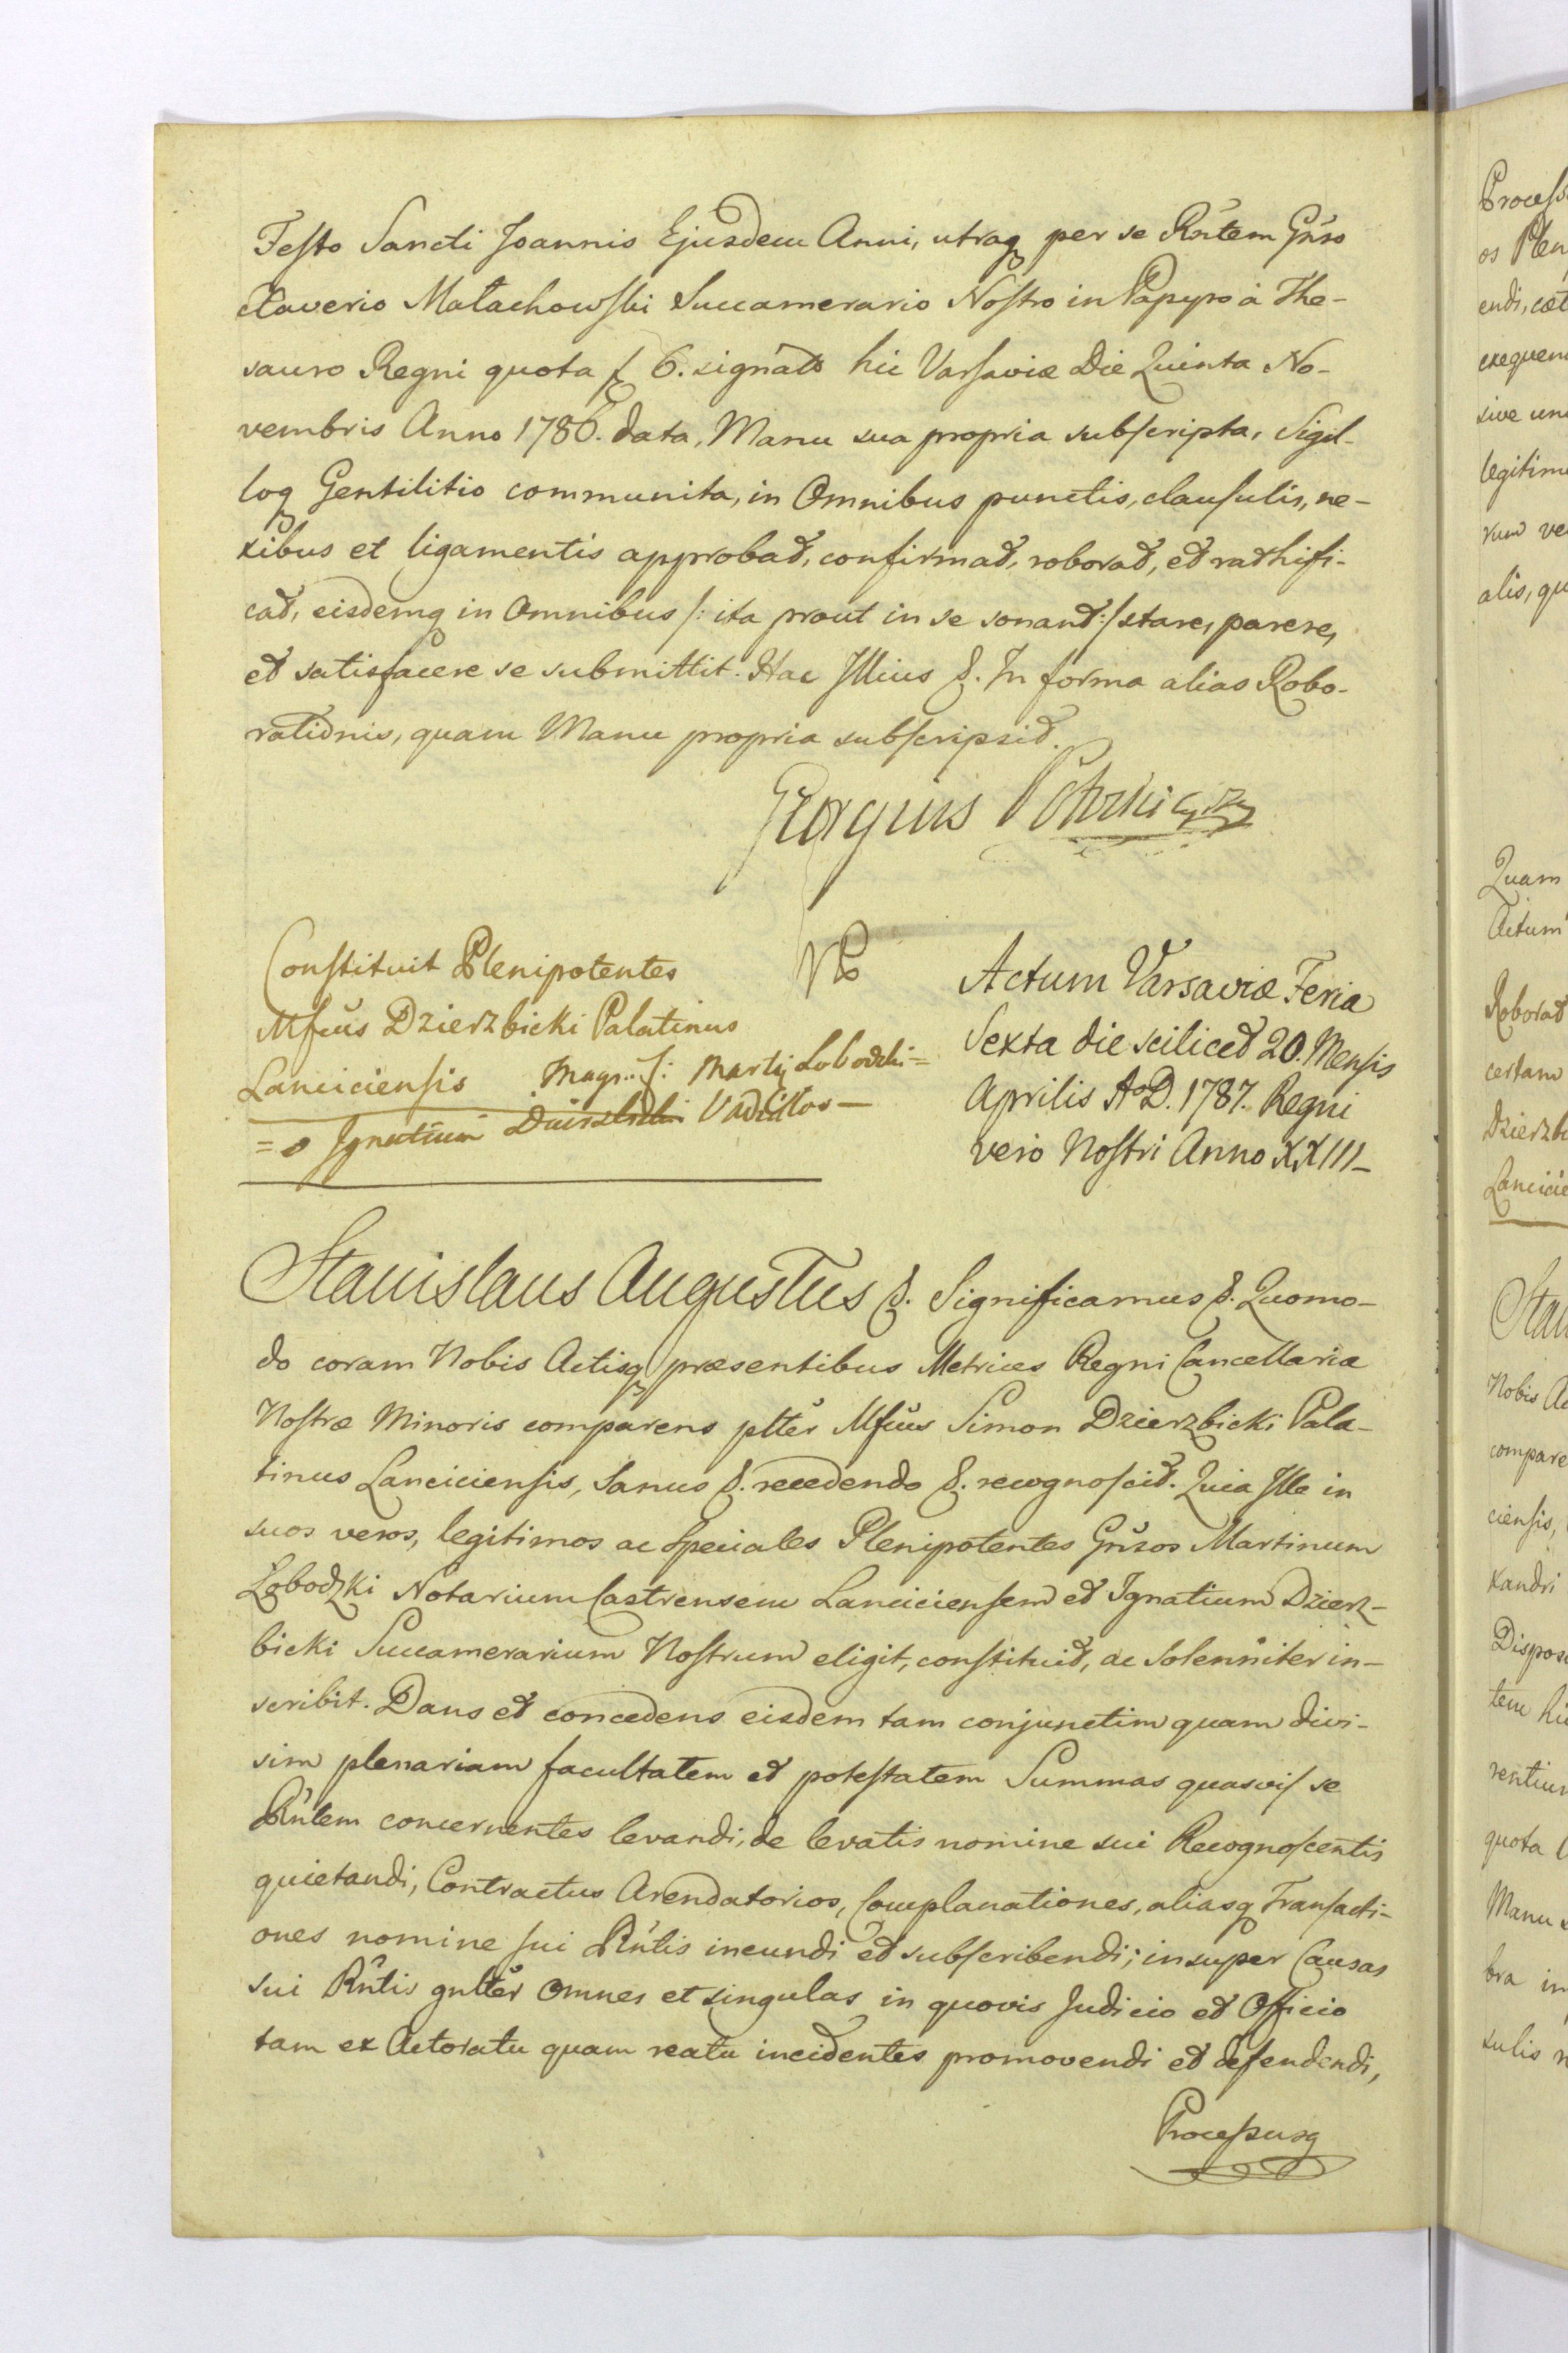 Festo Sancti Joannis Ejusdem Anni, utraq per se Rntem Gnso
Xaverio Małachowski Succamerario Nostro in Papyro à The-
sauro Regni quota f 6. signato hic Varsaviæ Die Quinta No-
vembris Anno 1786. data, Manu sua propria subscripta, Sigil-
loq Gentilitio communita, in Omnibus punctis, clausulis, ne-
xibus et ligamentis approbat, confirmat, roborat, et rathifi-
cat, eisdemq in Omnibus /: ita prout in se sonant :/ stare, parere,
et satisfacere se submittit. Hac Illius &. In forma alias Robo-
rationis, quam Manu propria subscripsit.
Georgius
Constituit Plenipotentes
Mfcus Dzierzbicki Palatinus
Lanciciensis
Actum Varsaviæ Feria
Sexta die scilicet 20. Mensis
Aprilis AoD. 1787. Regni
vero Nostri Anno XXIII
Stanislaus Augustus &. Significamus &. Quomo-
do coram Nobis Actisq præsentibus Metrices Regni Cancellariæ
Nostræ Minoris comparens pltter Mfcus Simon Dzierzbicki Pala-
tinus Lanciciensis, Sanus &. recedendo &. recognoscit. Quia Ille in
suos veros, legitimos ac speciales Plenipotentes Gnsos Martinum
Łobodzki Notarium Castrensem Lanciciensem et Ignatium Dzierz-
bicki Succamerarium Nostrum eligit, constituit, ac Solenniter in-
scribit. Dans et concedens eisdem tam conjunctim quam divi-
sim plenariam facultatem et potestatem Summas quasvis se
Rntem concernentes levandi, de levatis nomine sui Recognoscentis
quietandi, Contractus Arendatorios, Complanationes, aliasq Transacti-
ones nomine sui Rntis ineundi et subscribendi; insuper Causas
sui Rntis gnltter omnes et singulas in quovis Judicio et Officio
tam ex Actoratu quam reatu incidentes promovendi et defendendi,
Processusq